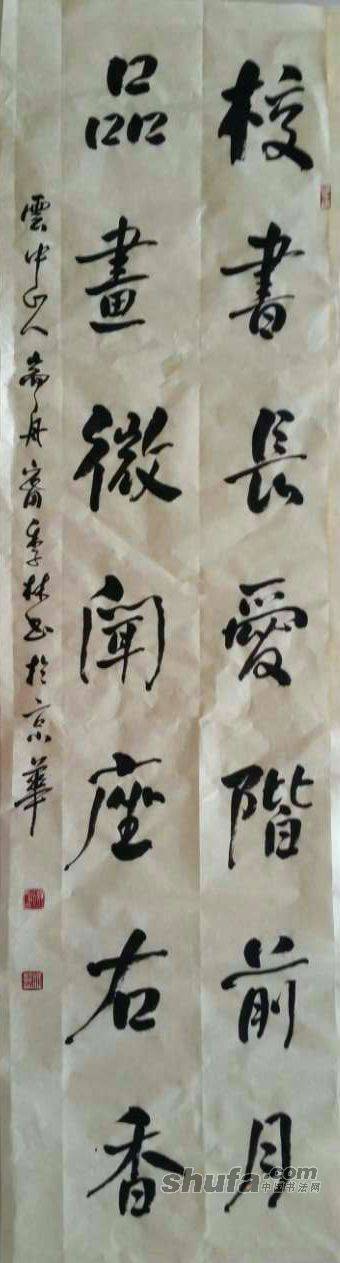 校書長愛階前月
品畫微聞座右香
雲中山人 丹甯季林书於京華
shufa.com
中国书法网